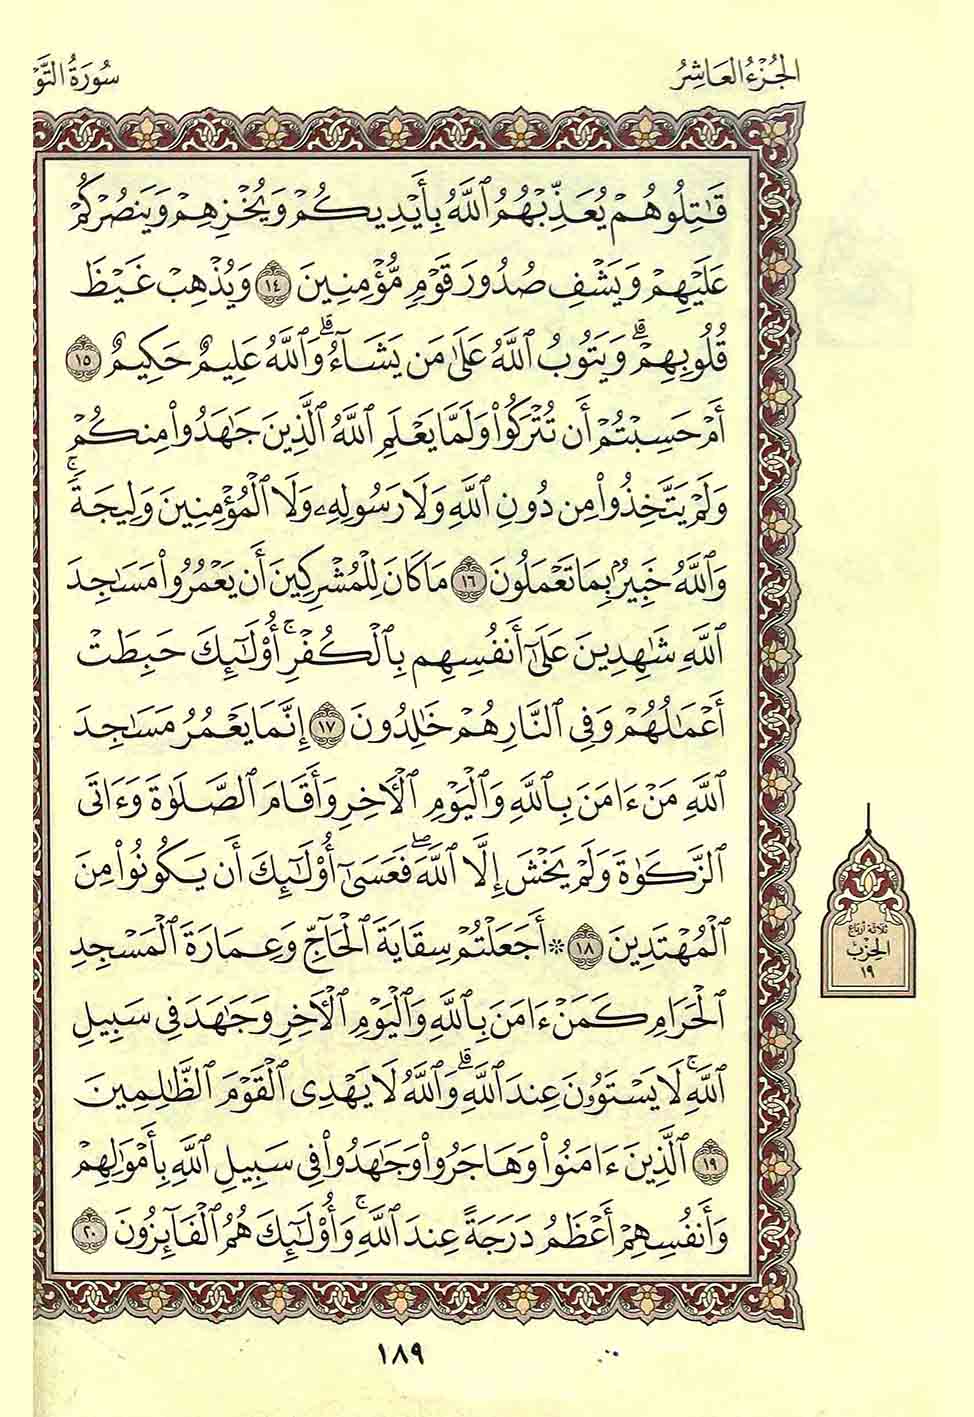 الجُزْءُ العَاشِرُ
سُورَةُ التَّوْ
قَٰتِلُوهُمْ يُعَذِّبْهُمُ ٱللَّهُ بِأَيْدِيكُمْ وَيُخْزِهِمْ وَيَنصُرْكُمْ
عَلَيْهِمْ وَيَشْفِ صُدُورَ قَوْمٍ مُّؤْمِنِينَ ١٤ وَيُذْهِبْ غَيْظَ
قُلُوبِهِمْ ۗ وَيَتُوبُ ٱللَّهُ عَلَىٰ مَن يَشَآءُ ۗ وَٱللَّهُ عَلِيمٌ حَكِيمٌ ١٥
أَمْ حَسِبْتُمْ أَن تُتْرَكُوا۟ وَلَمَّا يَعْلَمِ ٱللَّهُ ٱلَّذِينَ جَٰهَدُوا۟ مِنكُمْ
وَلَمْ يَتَّخِذُوا۟ مِن دُونِ ٱللَّهِ وَلَا رَسُولِهِۦ وَلَا ٱلْمُؤْمِنِينَ وَلِيجَةً ۚ
وَٱللَّهُ خَبِيرٌۢ بِمَا تَعْمَلُونَ ١٦ مَا كَانَ لِلْمُشْرِكِينَ أَن يَعْمُرُوا۟ مَسَٰجِدَ
ٱللَّهِ شَٰهِدِينَ عَلَىٰٓ أَنفُسِهِم بِٱلْكُفْرِ ۚ أُو۟لَٰٓئِكَ حَبِطَتْ
أَعْمَٰلُهُمْ وَفِى ٱلنَّارِ هُمْ خَٰلِدُونَ ١٧ إِنَّمَا يَعْمُرُ مَسَٰجِدَ
ٱللَّهِ مَنْ ءَامَنَ بِٱللَّهِ وَٱلْيَوْمِ ٱلْءَاخِرِ وَأَقَامَ ٱلصَّلَوٰةَ وَءَاتَى
ٱلزَّكَوٰةَ وَلَمْ يَخْشَ إِلَّا ٱللَّهَ ۖ فَعَسَىٰٓ أُو۟لَٰٓئِكَ أَن يَكُونُوا۟ مِنَ
ٱلْمُهْتَدِينَ ١٨ ۞ أَجَعَلْتُمْ سِقَايَةَ ٱلْحَآجِّ وَعِمَارَةَ ٱلْمَسْجِدِ
ٱلْحَرَامِ كَمَنْ ءَامَنَ بِٱللَّهِ وَٱلْيَوْمِ ٱلْءَاخِرِ وَجَٰهَدَ فِى سَبِيلِ
ٱللَّهِ ۚ لَا يَسْتَوُۥنَ عِندَ ٱللَّهِ ۗ وَٱللَّهُ لَا يَهْدِى ٱلْقَوْمَ ٱلظَّٰلِمِينَ
١٩ ٱلَّذِينَ ءَامَنُوا۟ وَهَاجَرُوا۟ وَجَٰهَدُوا۟ فِى سَبِيلِ ٱللَّهِ بِأَمْوَٰلِهِمْ
وَأَنفُسِهِمْ أَعْظَمُ دَرَجَةً عِندَ ٱللَّهِ ۚ وَأُو۟لَٰٓئِكَ هُمُ ٱلْفَآئِزُونَ ٢٠
ثلاثة أرباع
الحزب
١٩
١٨٩